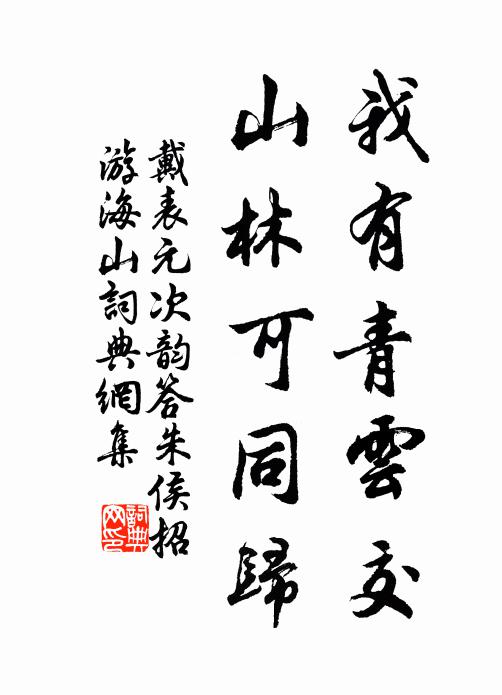 我有青雲交
山林可同歸
戴表元次韵答朱侯招
游海山詞典網集
詞典
网印